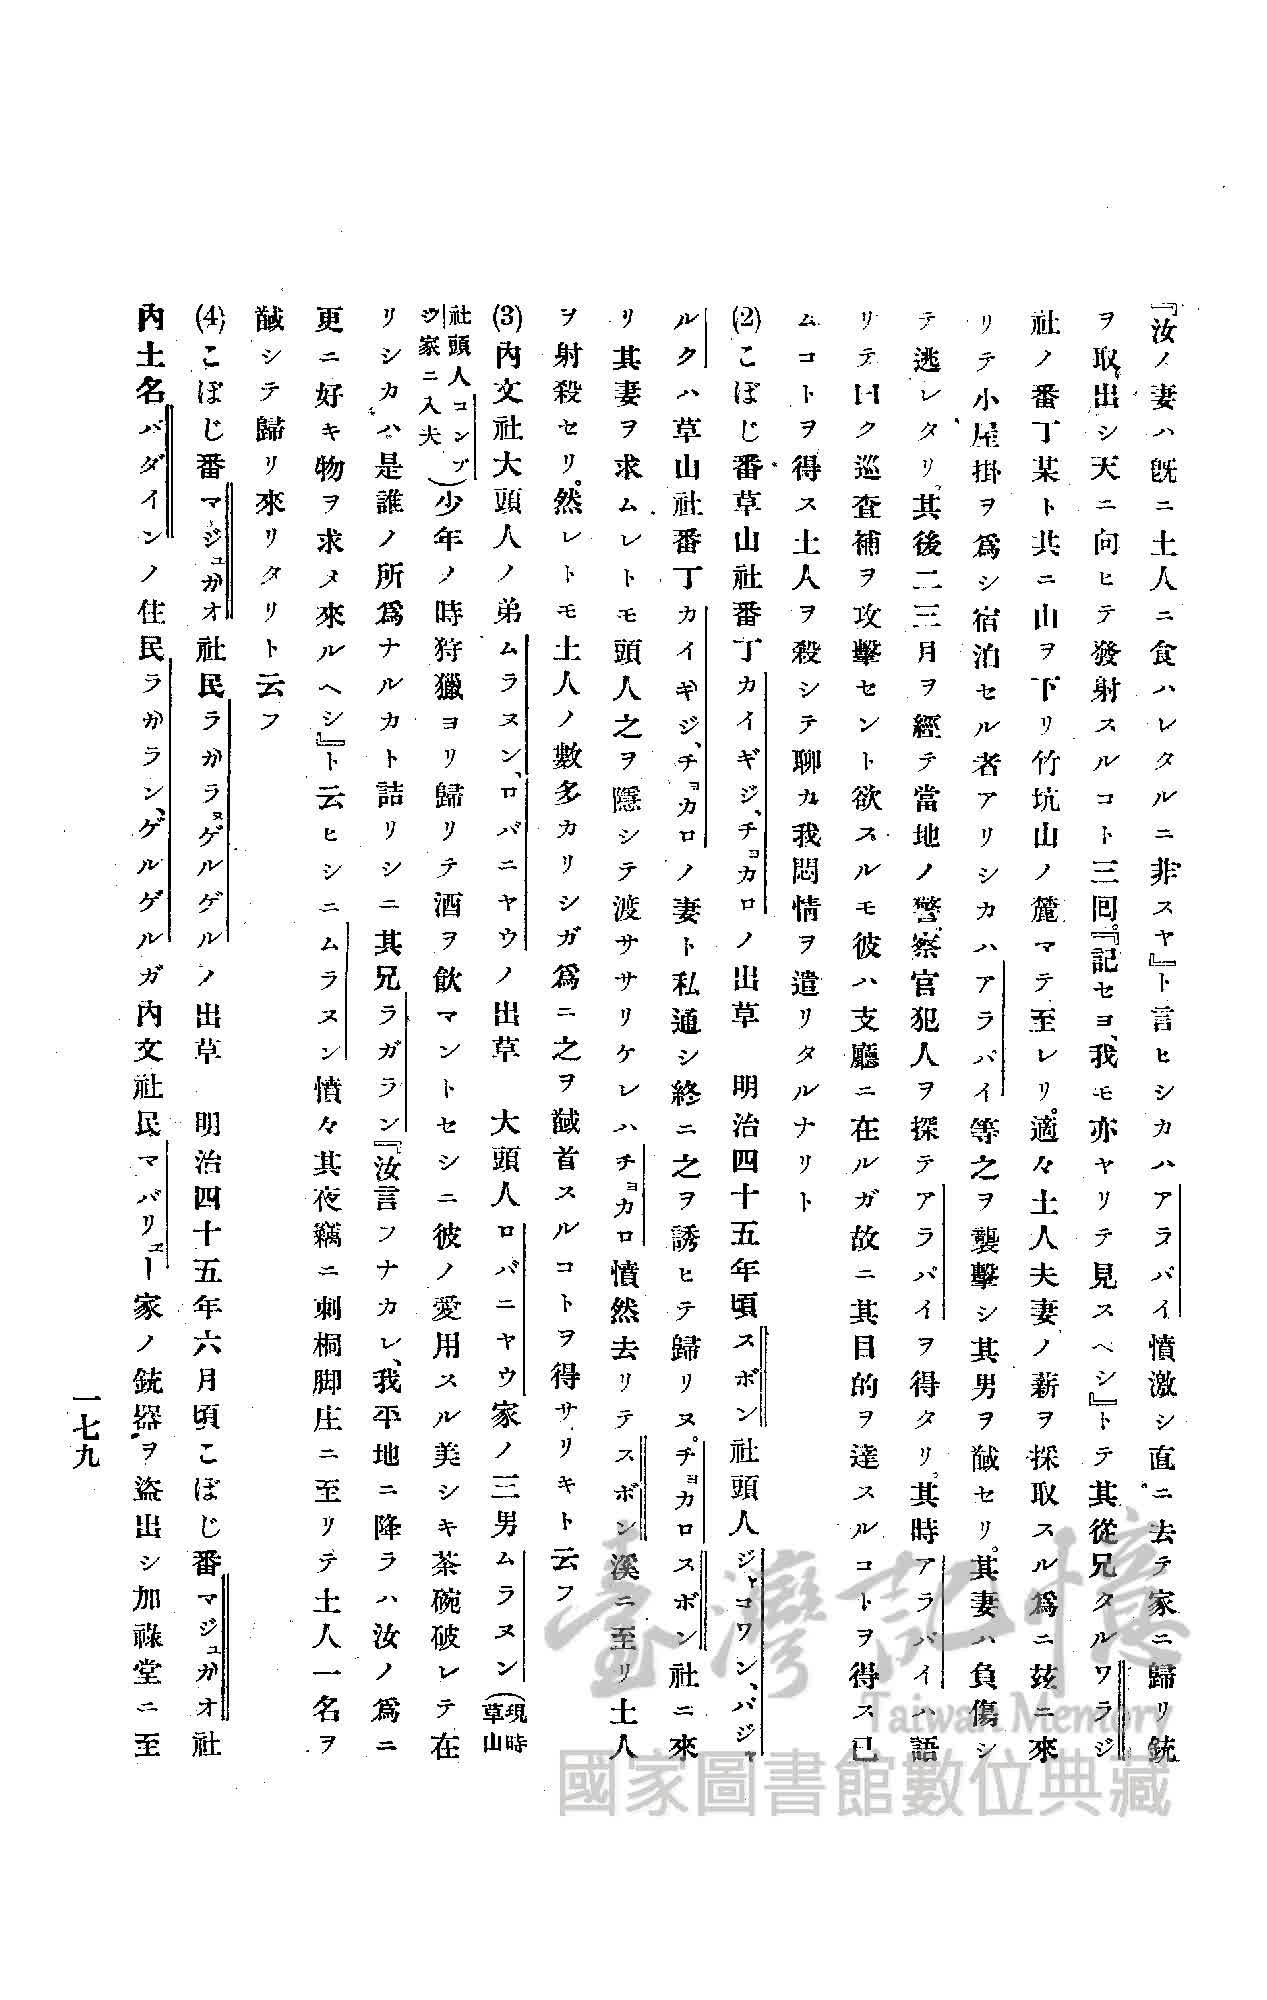 『汝ノ妻ハ既ニ土人ニ食ハレタルニ非スヤ』ト言ヒシカハアラバイ憤激シ直ニ去テ家ニ歸リ銃
ヲ取出シ天ニ向ヒテ發射スルコト三回。『記セヨ、我モ亦ヤリテ見スベシ』トテ其從兄タルワラジ
社ノ番丁某ト共ニ山ヲ下リ竹坑山ノ麓マテ至レリ。適々土人夫妻ノ薪ヲ採取スル爲ニ玆ニ來
リテ小屋掛ヲ爲シ宿泊セル者アリシカハアラバイ等之ヲ襲擊シ其男ヲ馘セリ。其妻ハ負傷シ
テ逃レタリ。其後二三月ヲ經テ當地ノ警察官犯人ヲ探テアラバイヲ得タリ。其時アラバイハ語
リテ曰ク巡査補ヲ攻擊セント欲スルモ彼ハ支廳ニ在ルガ故ニ其目的ヲ達スルコトヲ得ス已
ムコトヲ得ス土人ヲ殺シテ聊カ我悶情ヲ遣リタルナリト
(2)こぼじ番草山社番丁カイギジ、チョカロノ出草 明治四十五年頃スボン社頭人ジャコワン、バジャ
ルクハ草山社番丁カイギジ、チョカロノ妻ト私通シ終ニ之ヲ誘ヒテ歸リヌ。チョカロスボン社ニ來
リ其妻ヲ求ムレトモ頭人之ヲ隱シテ渡ササリケレハチョカロ憤然去リテスボン溪ニ至リ土人
ヲ射殺セリ。然レトモ土人ノ數多カリシガ爲ニ之ヲ馘首スルコトヲ得サリキト云フ
(3)內文社大頭人ノ弟ムラヌン、ロバニヤウノ出草 大頭人ロバニヤウ家ノ三男ムラヌン(現時草山
社頭人コンヅウ家ニ入夫)少年ノ時狩獵ヨリ歸リテ酒ヲ飮マントセシニ彼ノ愛用スル美シキ茶碗破レテ在
リシカハ是誰ノ所爲ナルカト詰リシニ其兄ラガラン『汝言フナカレ、我平地ニ降ラハ汝ノ爲ニ
更ニ好キ物ヲ求メ來ルヘシ』ト云ヒシニムラヌン憤々其夜竊ニ刺桐脚庄ニ至リテ土人一名ヲ
馘シテ歸リ來リタリト云フ
(4)こぼじ番マジュガオ社民ラガラヌゲルゲルノ出草 明治四十五年六月頃こぼじ番マジュガオ社
內土名バダインノ住民ラガラン、ゲルゲルガ內文社民マバリユー家ノ銃器ヲ盜出シ加祿堂ニ至
一七九
臺灣記憶
Taiwan Memory
國家圖書館數位典藏